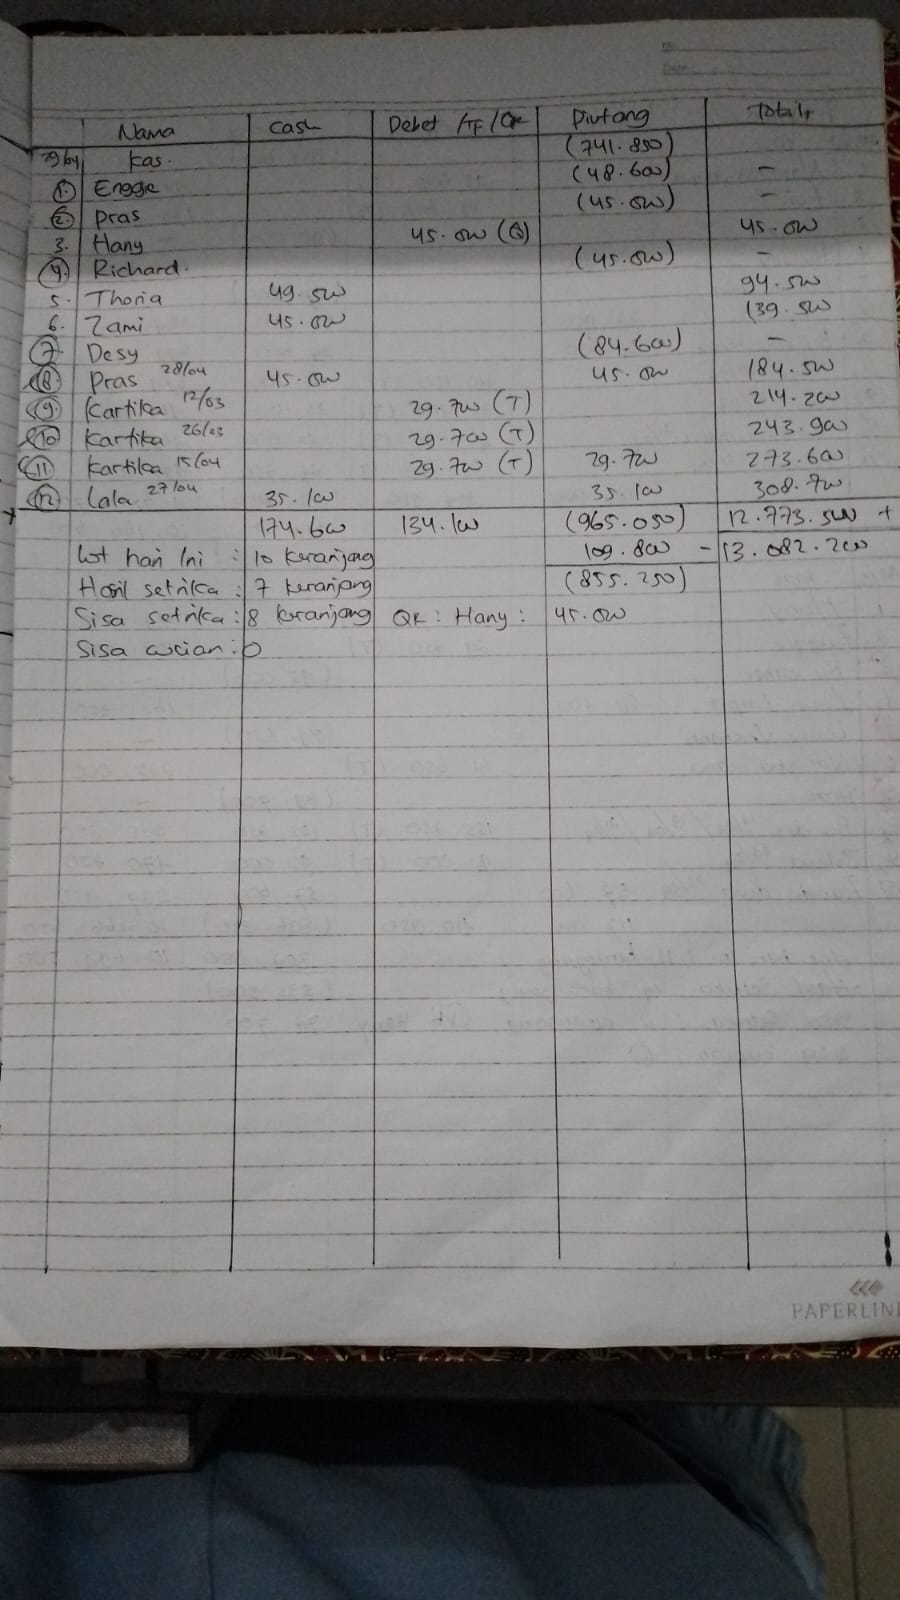 No.
Date:
Nama Cash Debet /TF/QR Piutang Total
29/04 Kas. (741.850)
1. Engge (48.600) -
2. Pras (45.000) -
3. Hany 45.000 (Q) 45.000
4. Richard. (45.000) -
5. Thoria 49.500 94.500
6. Zami 45.000 139.500
7. Desy (84.600) -
8. Pras 28/04 45.000 45.000 184.500
9. Kartika 12/03 29.700 (T) 214.200
10 Kartika 26/03 29.700 (T) 243.900
11 Kartika 15/04 29.700 (T) 29.700 273.600
12 Lala 27/04 35.100 35.100 308.700
174.600 134.100 (965.050) 12.773.500 +
Lot hari Ini : 10 keranjang 109.800 - 13.082.200
Hasil setrika : 7 keranjang (855.250)
Sisa setrika : 8 keranjang QR : Hany : 45.000
Sisa cucian : 0
PAPERLINE